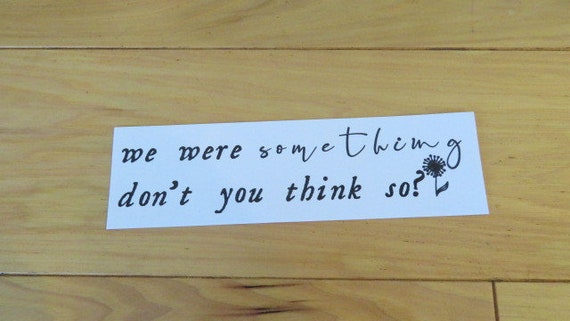 we were something
don't you think so?